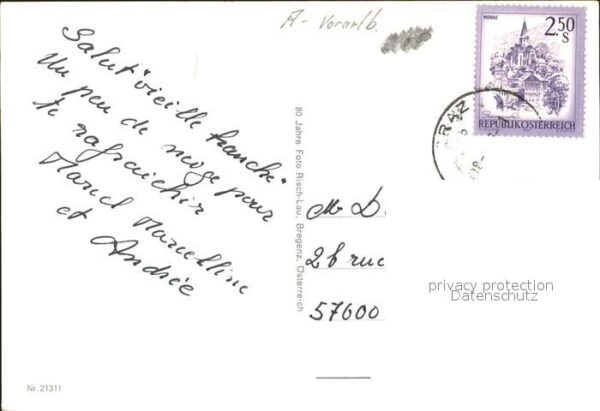 A - Vorarlb.
MURAU
2.50
S
REPUBLIK ÖSTERREICH
Salut "vieille branche"
Un peu de neige pour
te rafraichir
Marcel Marcelline
et Andrée
80 Jahre Foto Risch-Lau, Bregenz, Österreich
Mr D.
2b rue
57600
privacy protection
Datenschutz
Nr. 21311